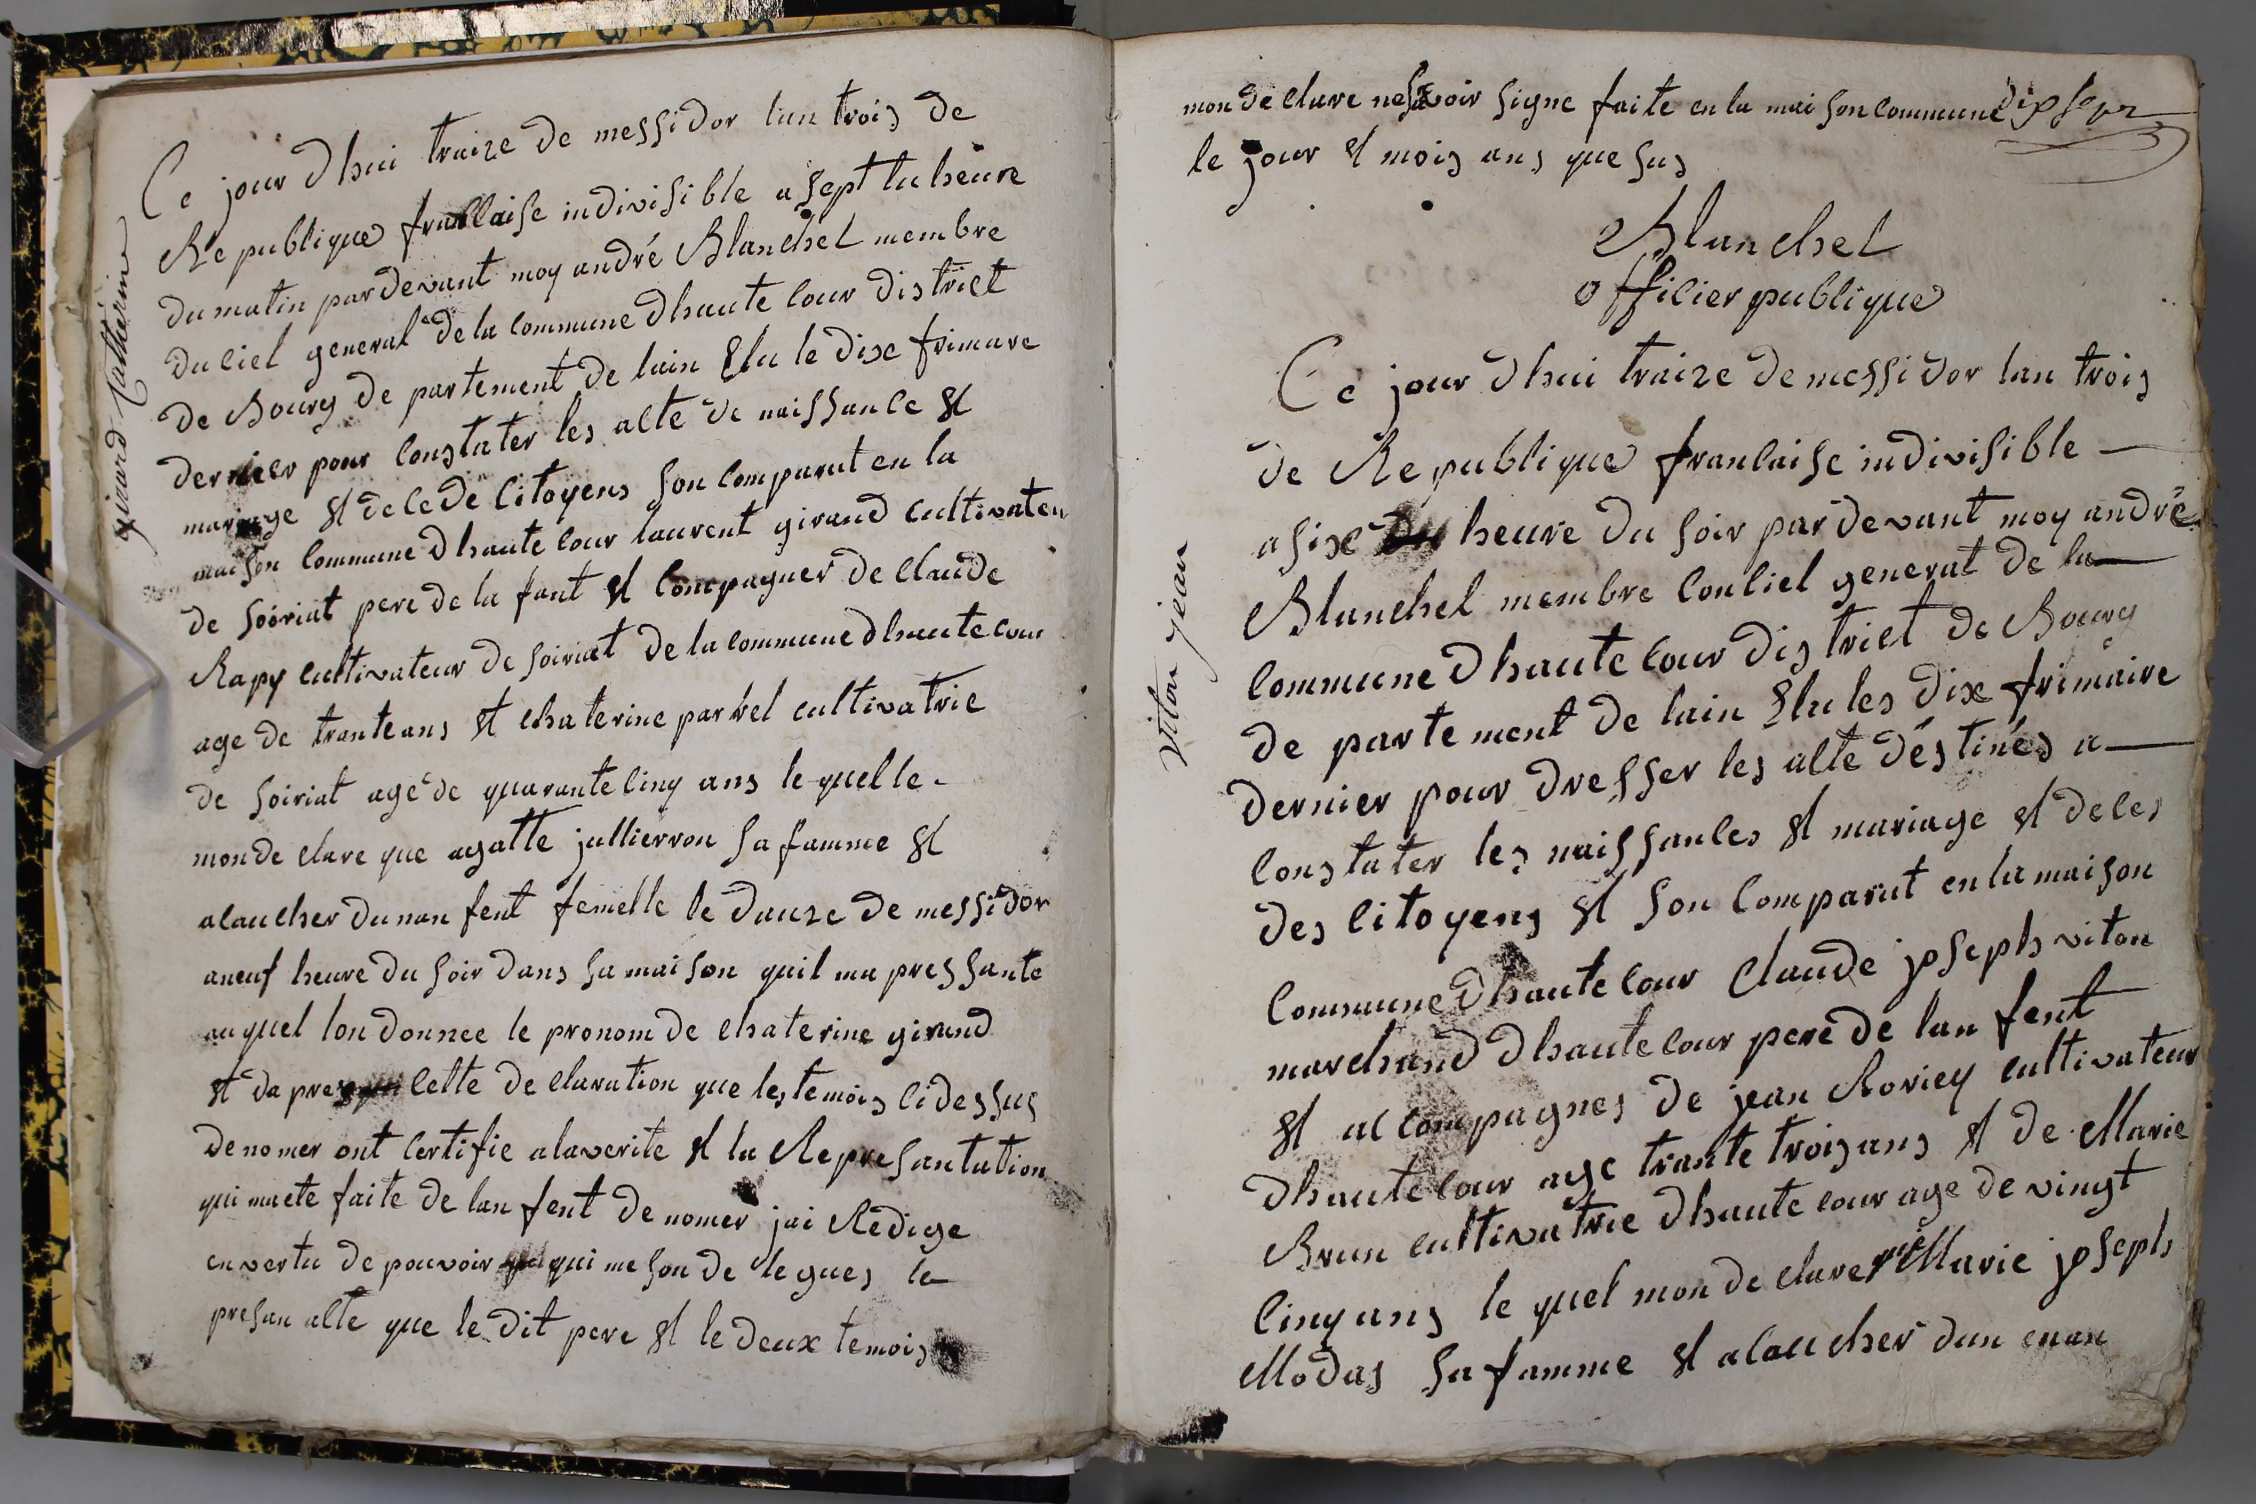 girard Catherine
Ce jour dhui traize de messidor lan trois de
Republique francaise indivisible a sept lu heure
du matin pardevant moy andré Blanchet membre
du ciel general de la commune dhaute cour district
de Bourg departement de lain Elu le dixe frimare
dernier pour constater les acte de naissance et
mariage et de cede citoyens son comparut en la
maison commune dhaute cour laurent giraud cultivateu
de soiriat pere de la fant et compagner de claude
Rapy cultivateur de soiriat de la commune dhaute cour
age de trante ans et chaterine parkel cultivatrie
de soiriat age de quarante cinq ans le quelle
mon de clare que agatte jullierron sa famme et
acaucher du nan fent femelle le dauze de messidor
a neuf heure du soir dans sa maison quil ma pressante
au quel lon donnee le pronom de chaterine giraud
et da pres cette de claration que les temois ci dessus
de nomer ont certifie a la verite et la Represantation
qui ma ete faite de lan fent de nomer jai Redige
en vertu de pouvoir qui me son de legues le
presan acte que le dit pere et le deux temois
mon de clare ne savoir signe faite en la maison commune dix sept
le jour et mois ans que sus
Blanchet
officier publique
viton jean
Ce jour dhui traize de messidor lan trois
de Republique francaise indivisible
a sixe heure du soir par devant moy andré
Blanchet membre conciel general de la
commune dhaute cour district de Bourg
de partement de lain Elu les dixe frimaire
dernier pour dresser les acte déstinés a
constater les naissances et mariage et deces
des citoyens et son comparut en la maison
commune dhaute cour claude joseph viton
marchand dhaute cour pere de lan fent
et accompagnes de jean Roriey cultivateur
dhaute cour age trante trois ans et de Marie
Brun cultivatrie dhaute cour age de vingt
cinq ans le quel mon de clarer que Marie joseph
Modas sa famme et acaucher dun enan